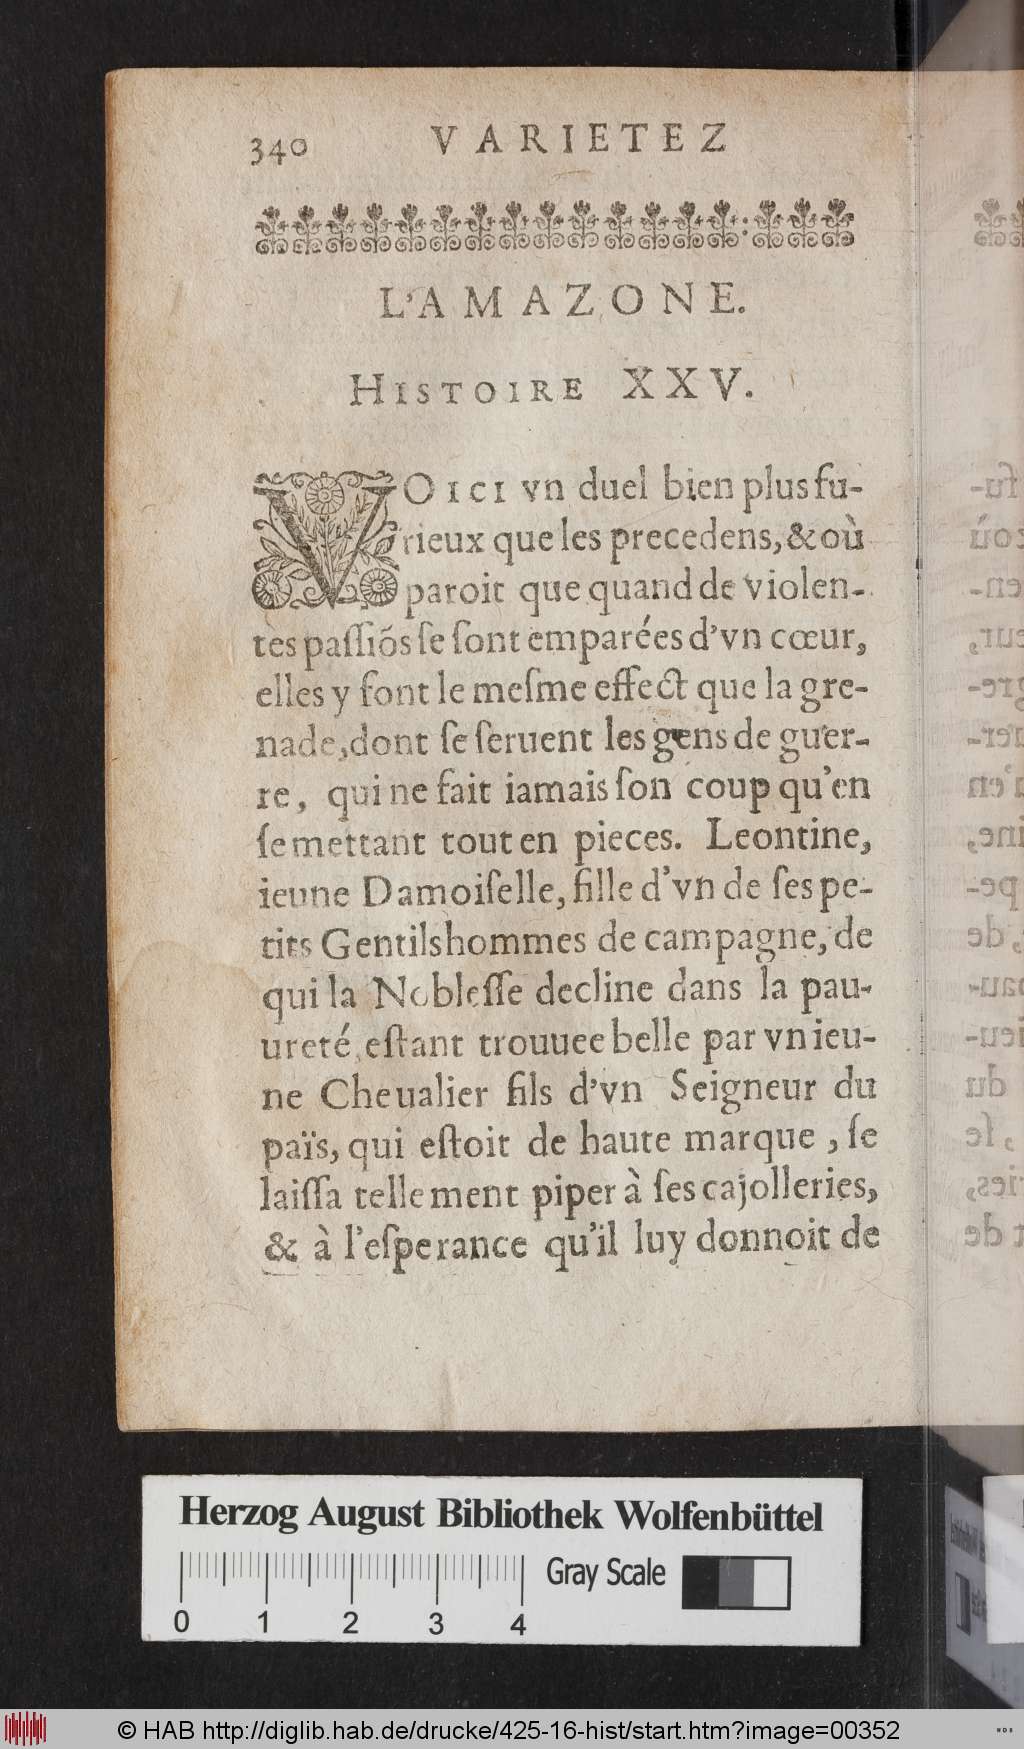 340 VARIETEZ
L'AMAZONE.
HISTOIRE XXV.
VOICI vn duel bien plus fu-
rieux que les precedens, & où
paroit que quand de violen-
tes paſſiõs ſe ſont emparées d'vn cœur,
elles y font le meſme effect que la gre-
nade, dont ſe ſeruent les gens de guer-
re, qui ne fait iamais ſon coup qu'en
ſe mettant tout en pieces. Leontine,
ieune Damoiſelle, fille d'vn de ſes pe-
tits Gentilshommes de campagne, de
qui la Nobleſſe decline dans la pau-
ureté, eſtant trouuee belle par vn ieu-
ne Cheualier fils d'vn Seigneur du
païs, qui eſtoit de haute marque, ſe
laiſſa tellement piper à ſes cajolleries,
& à l'eſperance qu'il luy donnoit de
Herzog August Bibliothek Wolfenbüttel
Gray Scale
0 1 2 3 4
© HAB http://diglib.hab.de/drucke/425-16-hist/start.htm?image=00352